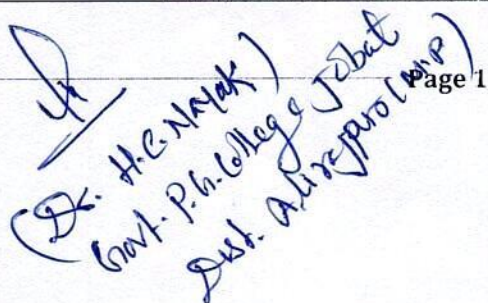 Page 1
(Dr. H.C. Nayak)
Govt. P.G. College Jobat
Dist. Alirajpur (M.P)